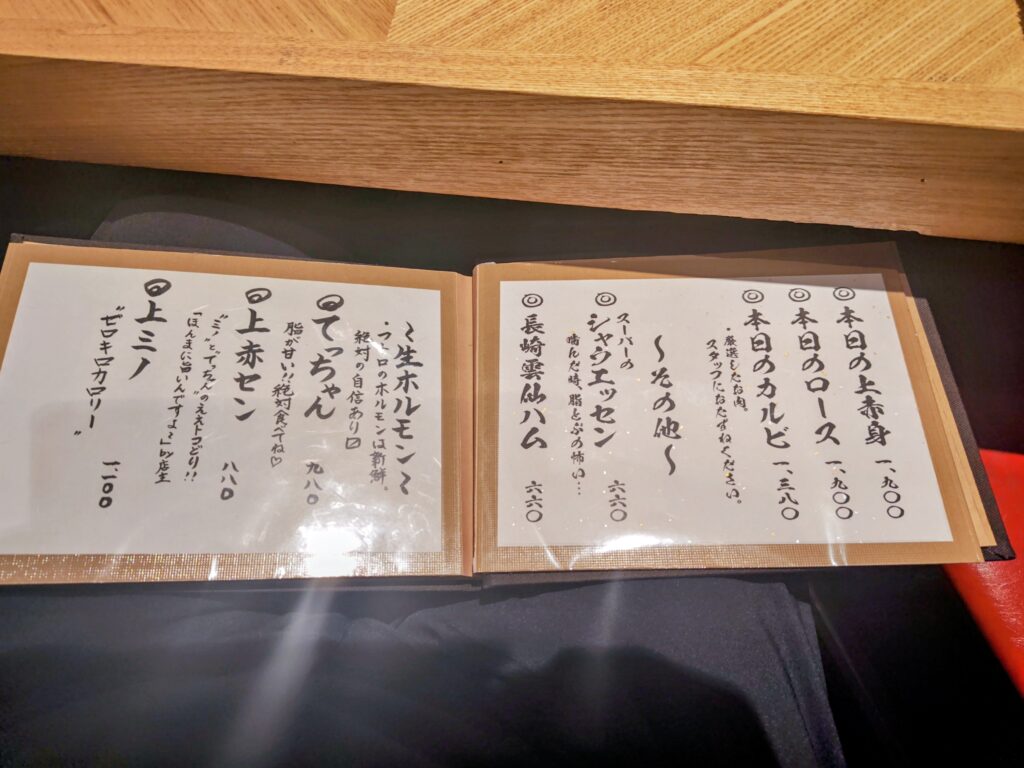 ◎本日の上赤身 一、九〇〇
◎本日のロース 一、九〇〇
◎本日のカルビ 一、三八〇
・厳選したお肉。
スタッフにおたずねください。
〜その他〜
スーパーの
◎シャウエッセン 六六〇
噛んだ時、脂とぶの怖い…
◎長崎雲仙ハム 六六〇
〜生ホルモン〜
・ウチロのホルモンは新鮮。
絶対の自信あり〼
◎てっちゃん 九八〇
脂が甘い!!絶対食べてね♡
◎上赤セン 八八〇
"ミノ"と"てっちゃん"のええトコどり!!
「ほんまに旨いんですよ?」by店主
◎上ミノ 一、一〇〇
"ゼロキロカロリー"